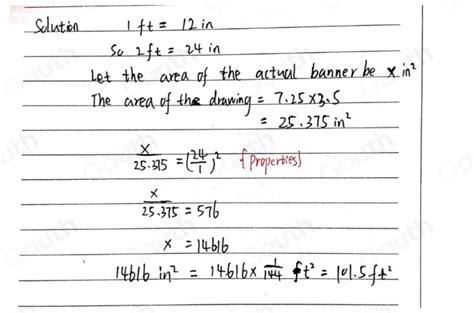 Solution 1 ft = 12 in
So 2 ft = 24 in
Let the area of the actual banner be x in²
The area of the drawing = 7.25×3.5
= 25.375 in²
x/25.375 = (24/1)² {properties)
x/25.375 = 576
x = 14616
14616 in² = 14616 × 1/144 ft² = 101.5 ft²